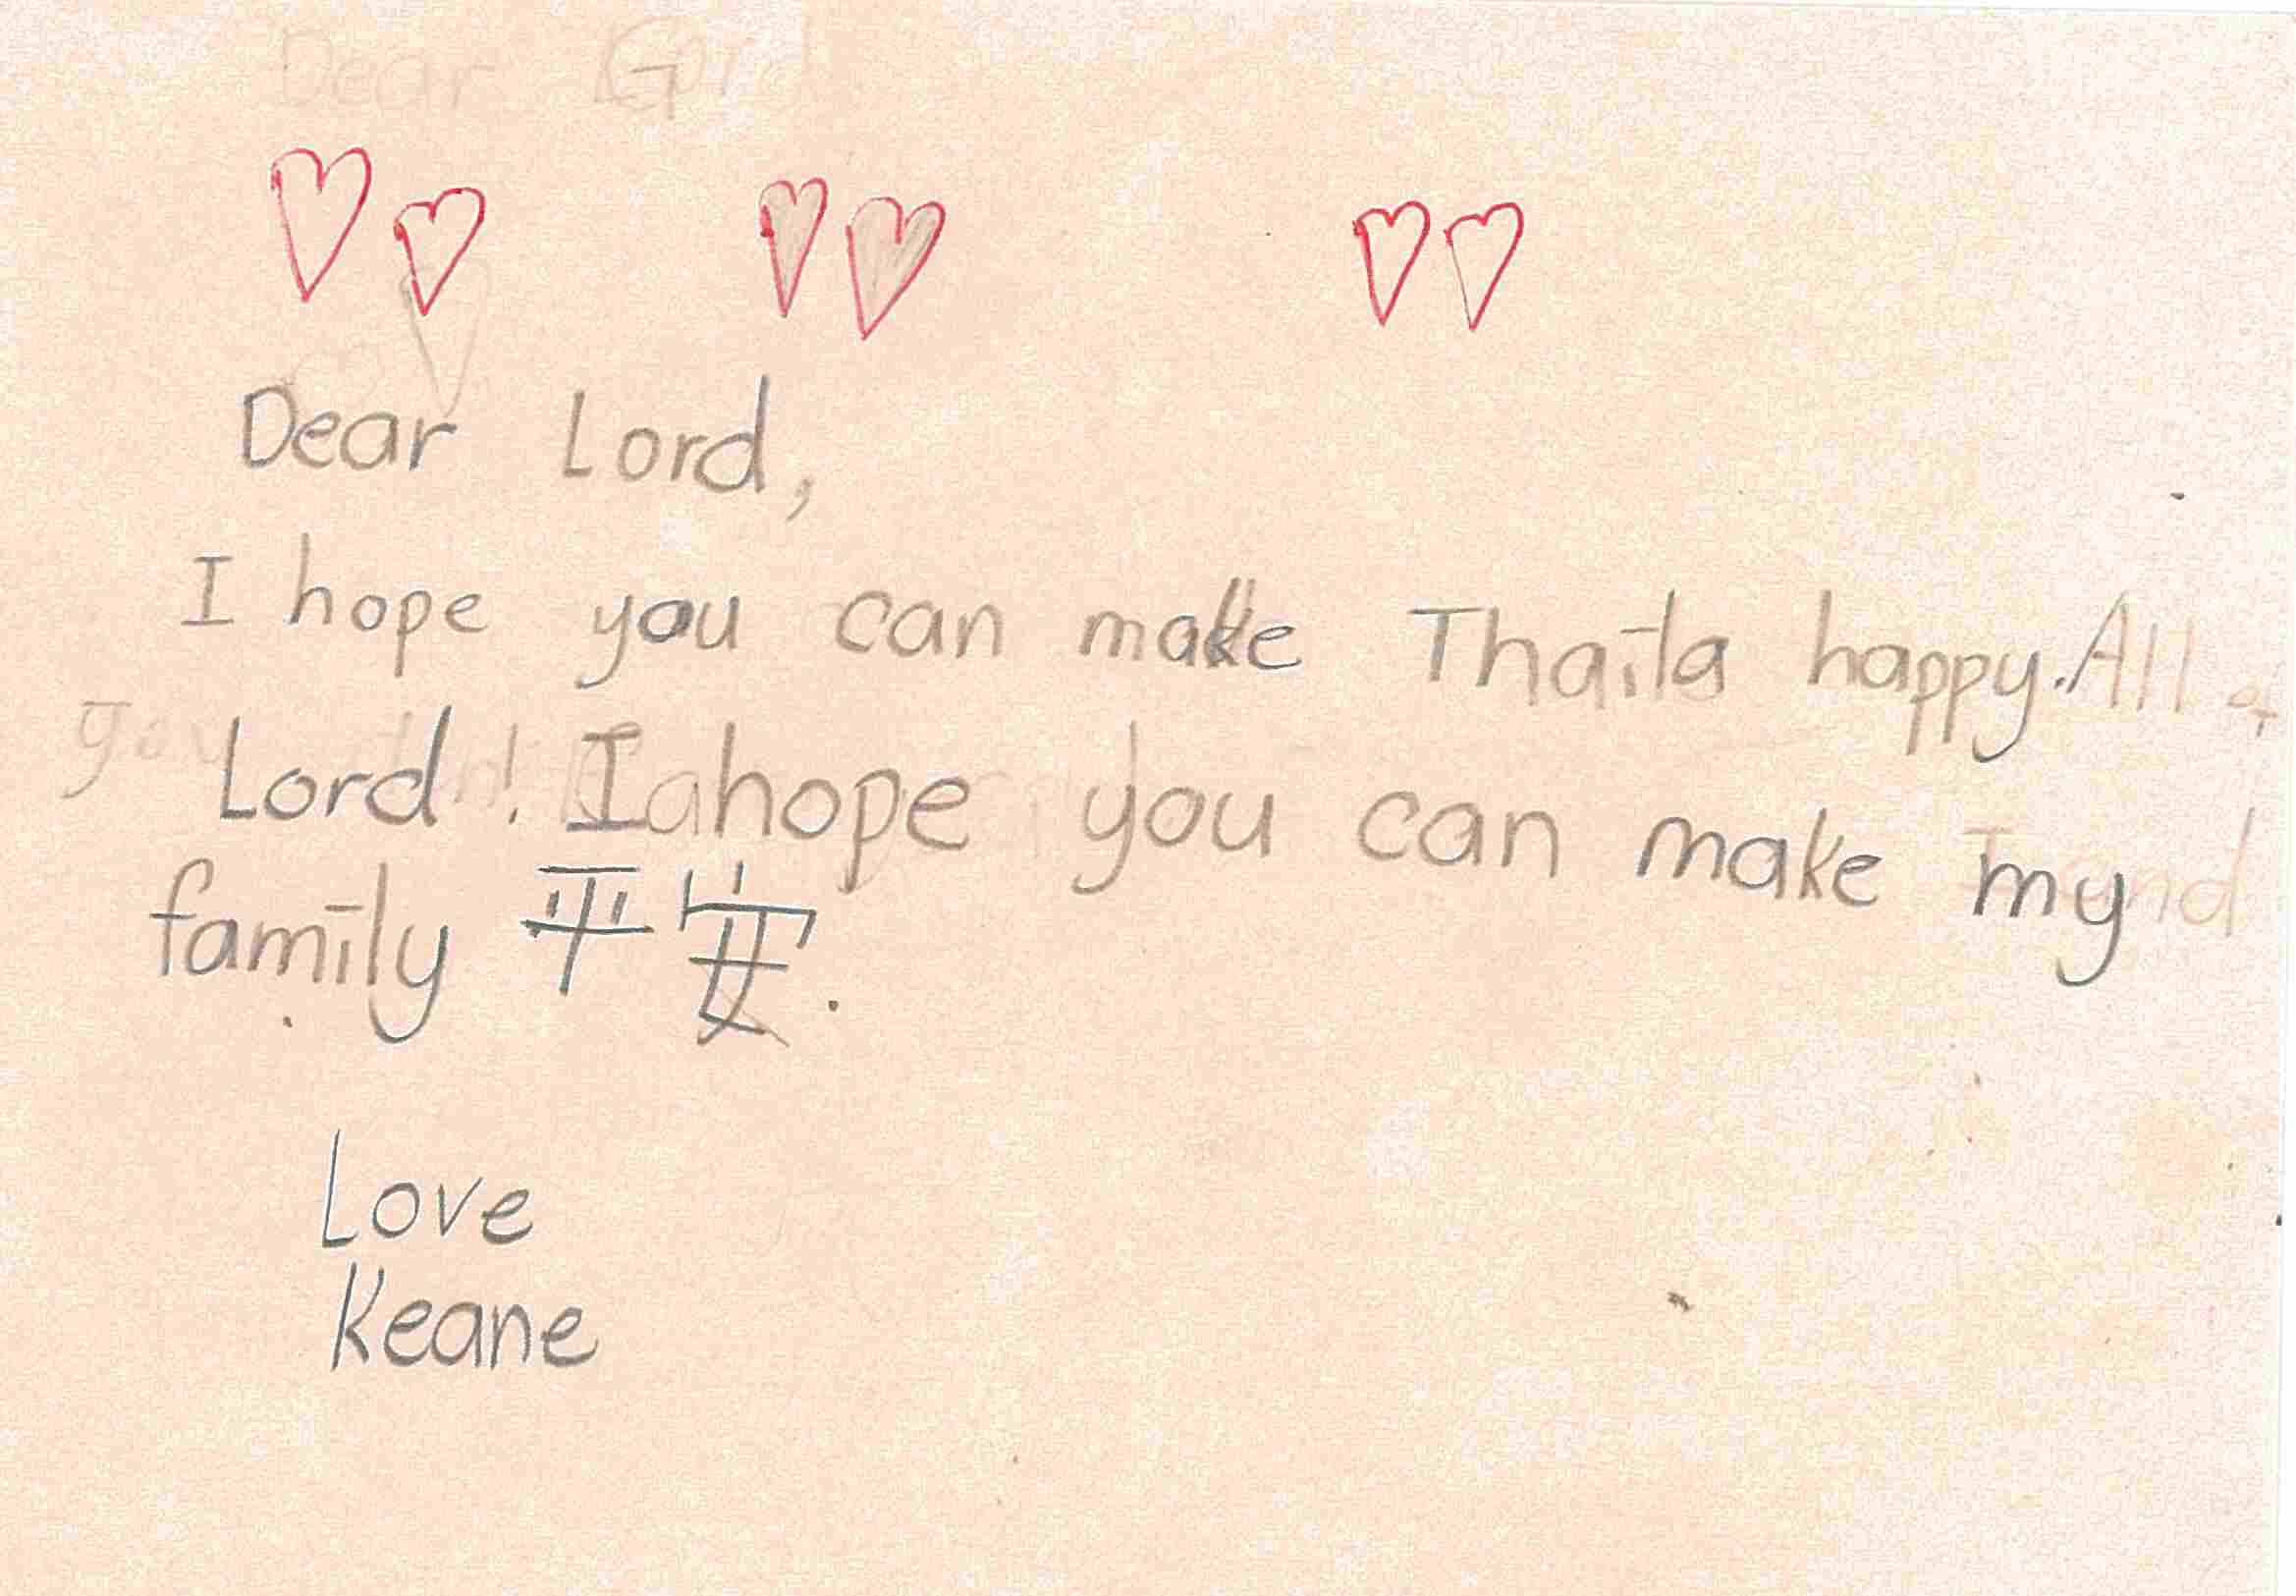 Dear Lord,
I hope you can make Thaila happy. All of
Lord! I hope you can make my
family 平安.
Love
Keane